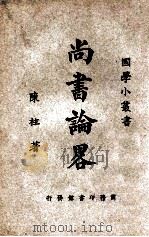 國學小叢書
尚書論畧
陳柱著
商務印書館發行